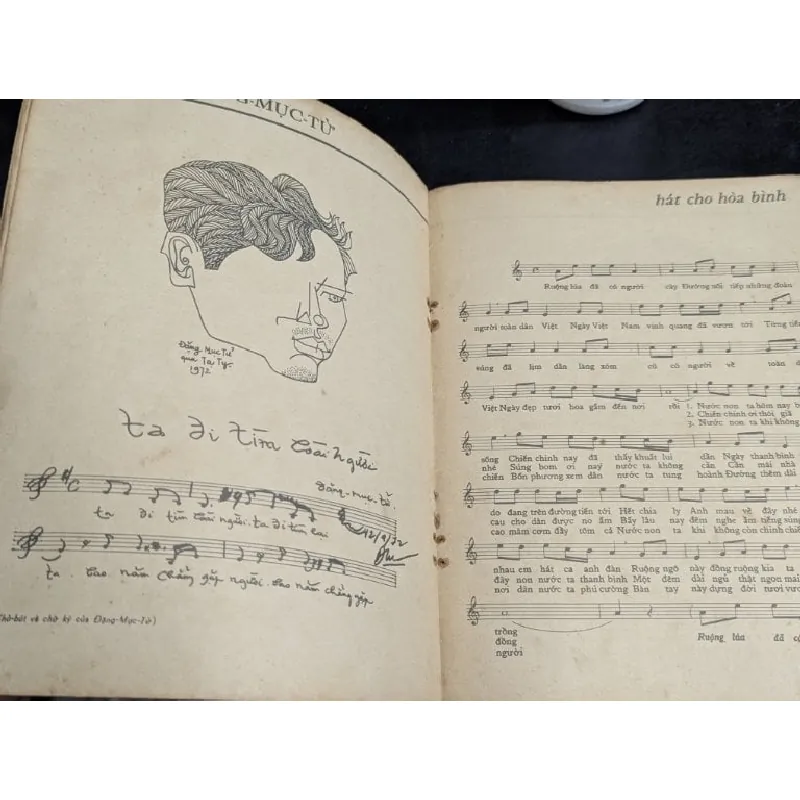 MỤC-TỬ
Đặng Mục Tử
qua Tạ Tỵ
1972
ta đi tìm loài người
đặng-mục-tử
ta đi tìm loài người. ta đi tìm
ta. bao năm chẳng gặp người. bao năm chẳng gặp
bút và chữ ký của Đặng-Mục-Tử)
hát cho hòa bình
Ruộng lúa đã có người cày Đường nối tiếp những đoàn
người toàn dân Việt Ngày Việt Nam vinh quang đã vươn tới Từng
súng đã lịm dần làng xóm cũ có người về toàn
Việt Ngày đẹp tươi hoa gấm đến nơi rồi 1. Nước non ta hôm nay
2. Chiến chinh ơi thôi giã
3. Nước non ta khi không
sống Chiến chinh nay đã thấy khuất lui dần Ngày thanh bình
nhé Súng bom ơi nay nước ta không cần Căn mái nhà
chiến Bốn phương xem dân ta tung hoành Đường thêm dài
do đang trên đường tiến tới Hết chia ly Anh mau về đây nhé
cau cho dân được no ấm Bấy lâu nay đêm nghe âm tiếng súng
cao mâm cơm đầy tôm cá Nước non ta khi không còn chinh
nhau em hát ca anh đàn Ruộng ngô này đồng ruộng kia
đây non nước ta thanh bình Một đêm dài ngủ thật ngon
nơi dân nước ta phú cường Bàn tay này dựng đời tươi
trồng
đồng
người
Ruộng lúa đã